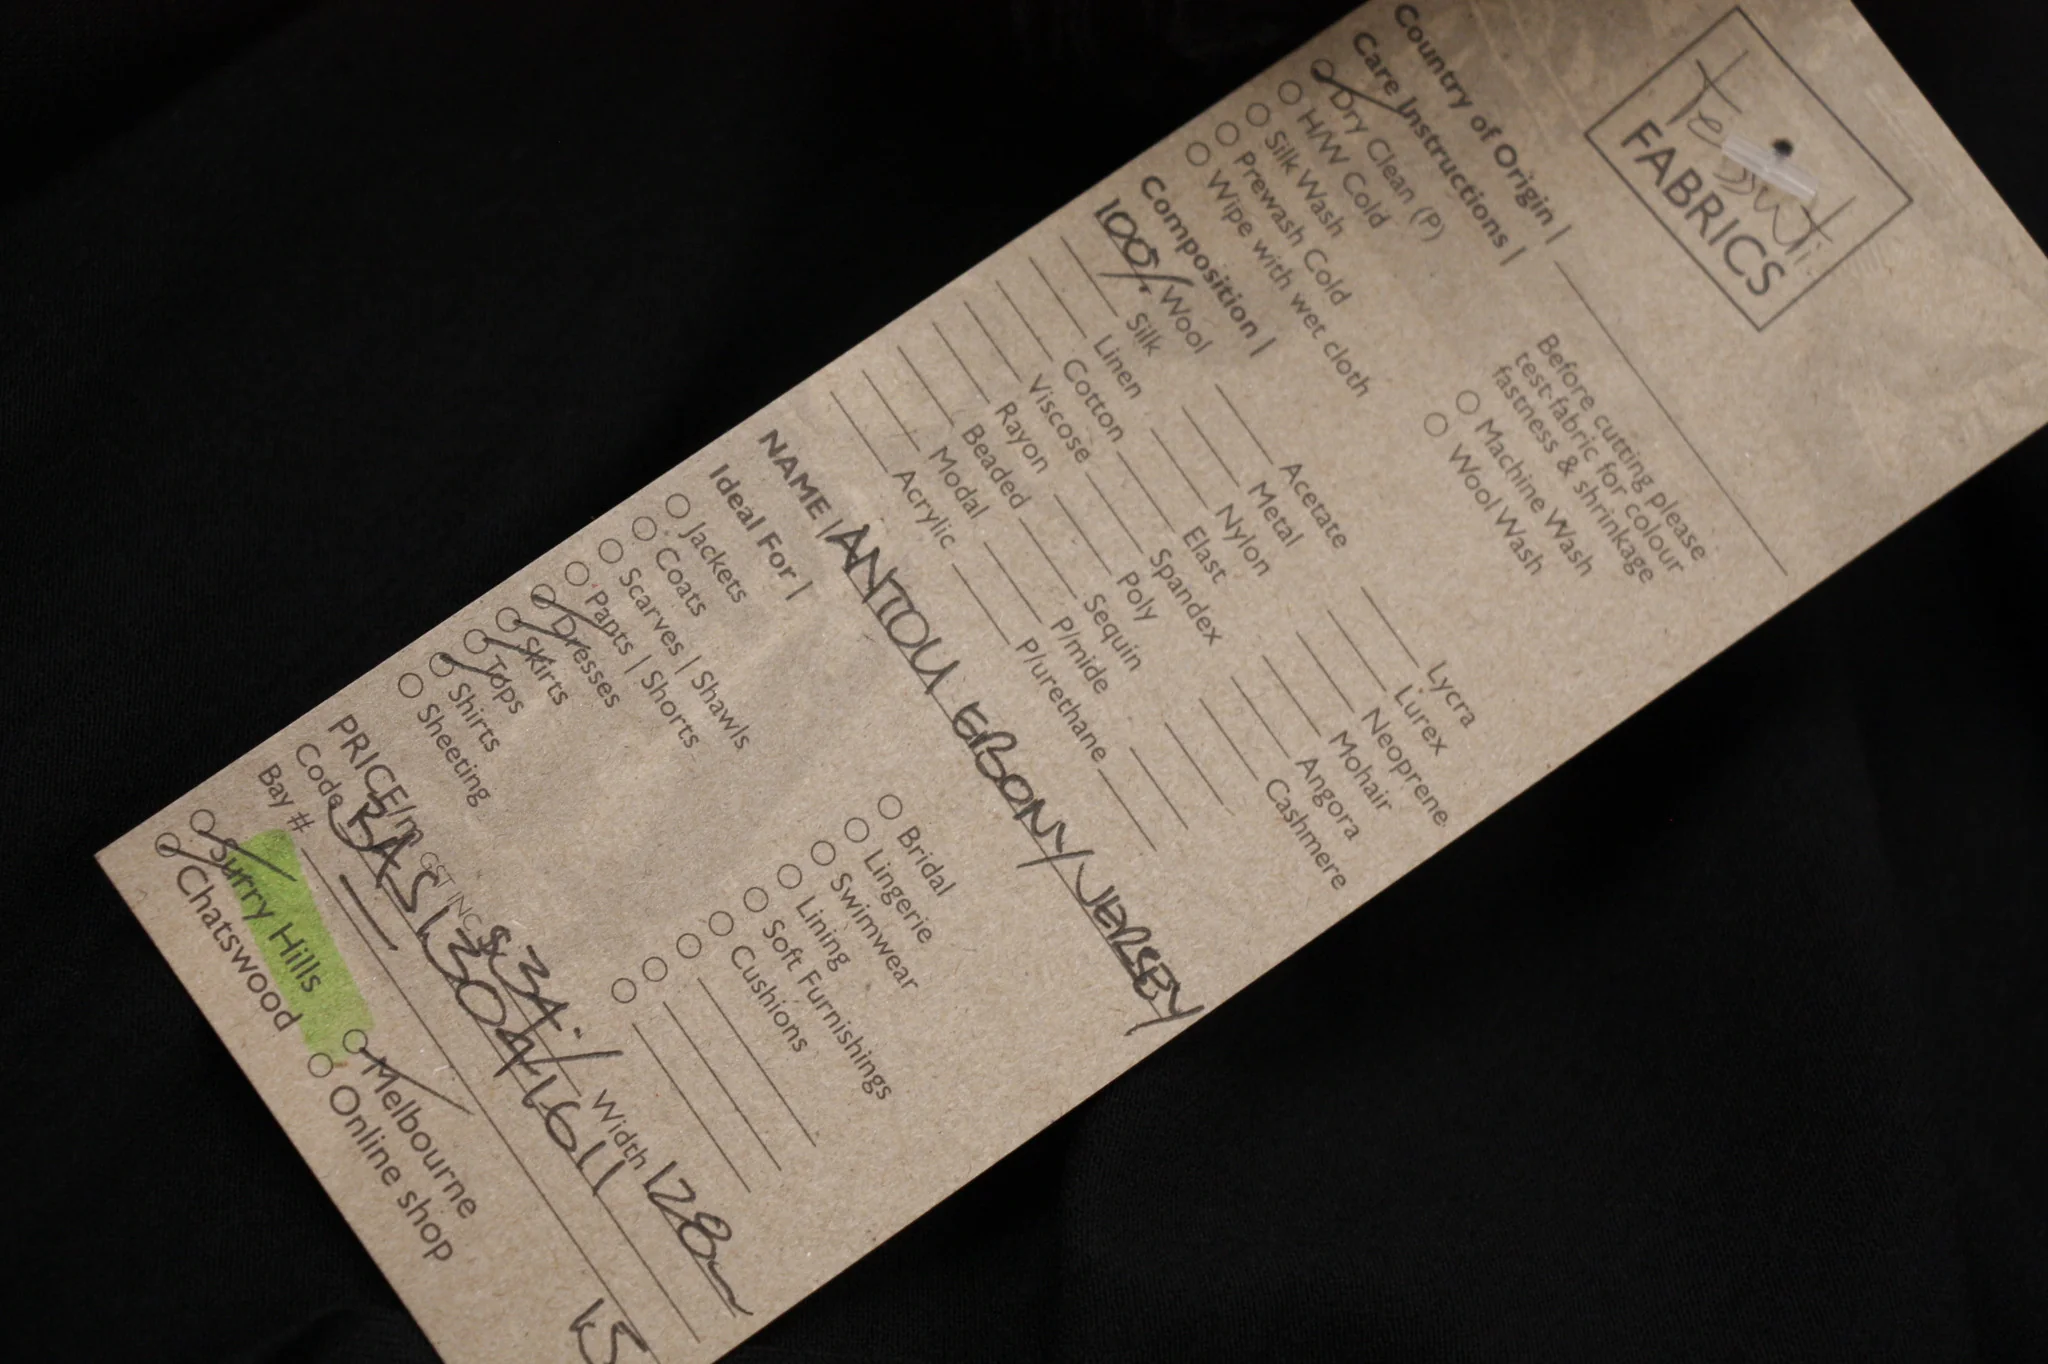 Tessuti
FABRICS
Country of Origin |
Care Instructions |
Dry Clean (P)
H/W Cold
Silk Wash
Prewash Cold
Wipe with wet cloth
Before cutting please
test-fabric for colour
fastness & shrinkage
Machine Wash
Wool Wash
Composition |
100% Wool
Silk
Linen
Cotton
Viscose
Rayon
Beaded
Modal
Acrylic
Acetate
Metal
Nylon
Elast
Spandex
Poly
Sequin
P/mide
P/urethane
Lycra
Lurex
Neoprene
Mohair
Angora
Cashmere
NAME | ANTOU EBONY/JERSEY
Ideal For |
Jackets
Coats
Scarves | Shawls
Pants | Shorts
Dresses
Skirts
Tops
Shirts
Sheeting
Bridal
Lingerie
Swimwear
Lining
Soft Furnishings
Cushions
PRICE/m GST INC $34. Width 128
Code BAS
Bay #
Surry Hills
Chatswood
Melbourne
Online shop